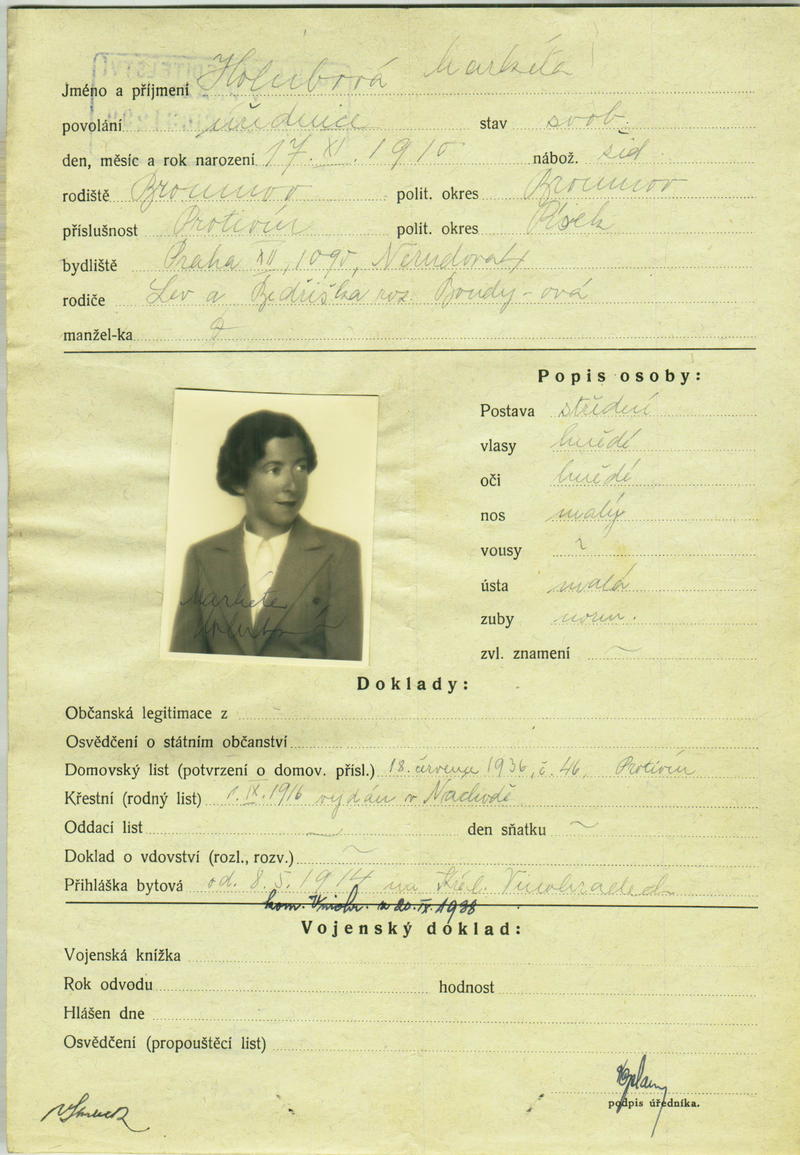 Jméno a příjmení Holubová Markéta
povolání úřednice stav svob.
den, měsíc a rok narození 17. XI. 1910 nábož. žid
rodiště Broumov polit. okres Broumov
příslušnost Protivín polit. okres Písek
bydliště Praha XII, 1090, Nerudova
rodiče Lev a Bedřiška roz. Bondy-ová
manžel-ka
Popis osoby:
Postava střední
vlasy hnědé
oči hnědé
nos malý
vousy
ústa malá
zuby norm.
zvl. znamení
Markéta
Holubová
Doklady:
Občanská legitimace z
Osvědčení o státním občanství
Domovský list (potvrzení o domov. přísl.) 18. července 1936, č. 46, Protivín
Křestní (rodný list) 1. IX. 1916 vydán v Náchodě
Oddací list den sňatku
Doklad o vdovství (rozl., rozv.)
Přihláška bytová od. 8. 5. 1914 na Král. Vinohradech
kom. Vinohr. 20. IX. 1938
Vojenský doklad:
Vojenská knížka
Rok odvodu hodnost
Hlášen dne
Osvědčení (propouštěcí list)
podpis úředníka.